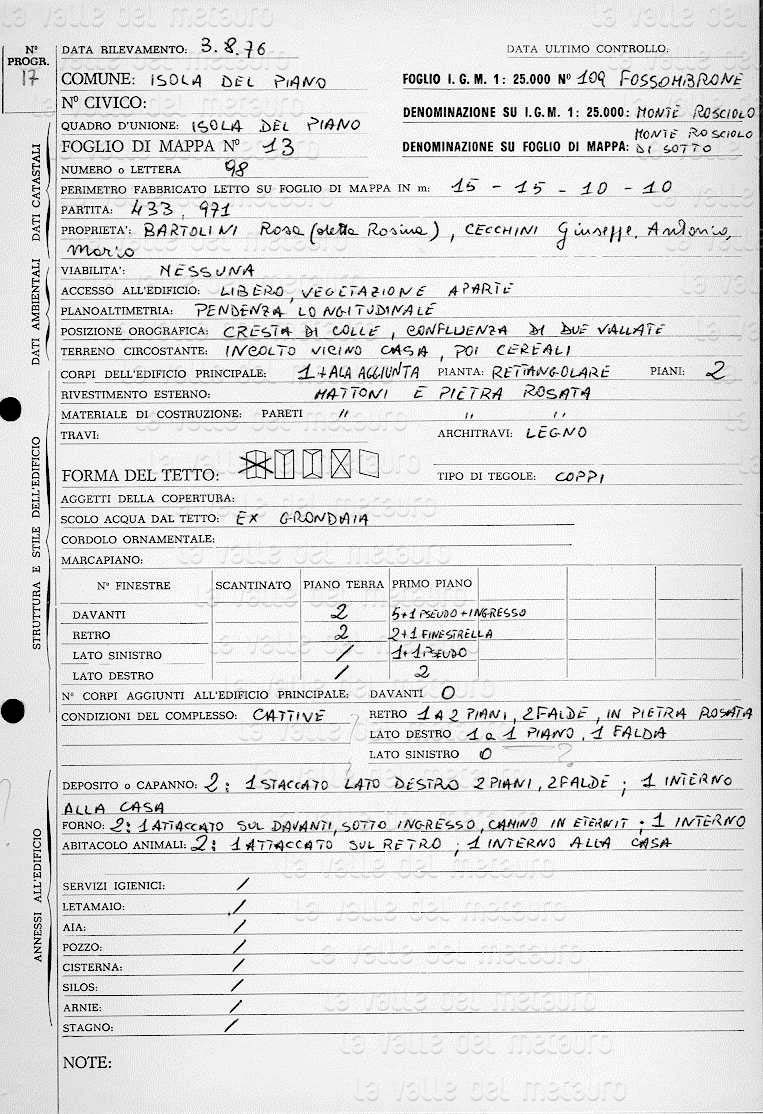 N° PROGR. 17
DATA RILEVAMENTO: 3.8.76 DATA ULTIMO CONTROLLO:
COMUNE: ISOLA DEL PIANO FOGLIO I.G.M. 1: 25.000 N° 109 FOSSOMBRONE
N° CIVICO: DENOMINAZIONE SU I.G.M. 1: 25.000: MONTE ROSCIOLO
QUADRO D'UNIONE: ISOLA DEL PIANO
FOGLIO DI MAPPA N° 13 DENOMINAZIONE SU FOGLIO DI MAPPA: MONTE ROSCIOLO DI SOTTO
NUMERO o LETTERA 98
PERIMETRO FABBRICATO LETTO SU FOGLIO DI MAPPA IN m: 15 - 15 - 10 - 10
PARTITA: 433, 971
PROPRIETA': BARTOLINI Rosa (detta Rosina), CECCHINI Giuseppe, Antonio,
Mario
DATI CATASTALI
VIABILITA': NESSUNA
ACCESSO ALL'EDIFICIO: LIBERO, VEGETAZIONE APARTE
PLANOALTIMETRIA: PENDENZA LONGITUDINALE
POSIZIONE OROGRAFICA: CRESTA DI COLLE, CONFLUENZA DI DUE VALLATE
TERRENO CIRCOSTANTE: INCOLTO VICINO CASA, POI CEREALI
DATI AMBIENTALI
CORPI DELL'EDIFICIO PRINCIPALE: 1 + ALA AGGIUNTA PIANTA: RETTANGOLARE PIANI: 2
RIVESTIMENTO ESTERNO: MATTONI E PIETRA ROSATA
MATERIALE DI COSTRUZIONE: PARETI " " "
TRAVI: ARCHITRAVI: LEGNO
FORMA DEL TETTO: TIPO DI TEGOLE: COPPI
AGGETTI DELLA COPERTURA:
SCOLO ACQUA DAL TETTO: EX GRONDAIA
CORDOLO ORNAMENTALE:
MARCAPIANO:
N° FINESTRE SCANTINATO PIANO TERRA PRIMO PIANO
DAVANTI 2 5+1 PSEUDO+INGRESSO
RETRO 2 2+1 FINESTRELLA
LATO SINISTRO / 1+1 PSEUDO
LATO DESTRO / 2
N° CORPI AGGIUNTI ALL'EDIFICIO PRINCIPALE: DAVANTI 0
CONDIZIONI DEL COMPLESSO: CATTIVE RETRO 1 A 2 PIANI, 2 FALDE, IN PIETRA ROSATA
LATO DESTRO 1 a 1 PIANO, 1 FALDA
LATO SINISTRO 0 ?
STRUTTURA E STILE DELL'EDIFICIO
DEPOSITO o CAPANNO: 2: 1 STACCATO LATO DESTRO 2 PIANI, 2 FALDE; 1 INTERNO
ALLA CASA
FORNO: 2: 1 ATTACCATO SUL DAVANTI, SOTTO INGRESSO, CAMINO IN ETERNIT; 1 INTERNO
ABITACOLO ANIMALI: 2: 1 ATTACCATO SUL RETRO; 1 INTERNO ALLA CASA
SERVIZI IGIENICI: /
LETAMAIO: /
AIA: /
POZZO: /
CISTERNA: /
SILOS: /
ARNIE: /
STAGNO: /
ANNESSI ALL'EDIFICIO
NOTE:
la valle del metauro